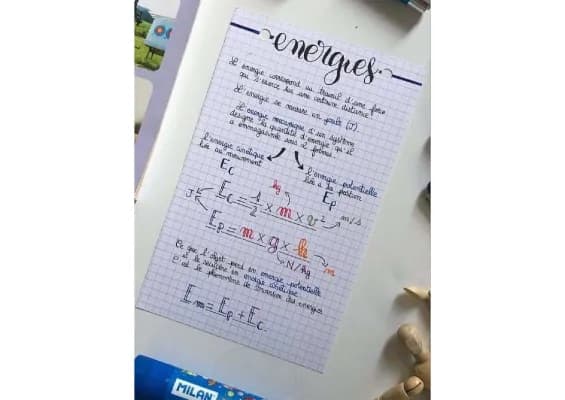 energies
L'energie correspond au travail d'une force
qui s'exerce sur une certaine distance
L'energie se mesure en joule (J)
L'energie mecanique d'un système
designe la quantité d'energie qu'il
a emmagasinée sous 2 formes
l'energie cinetique
liée au mouvement
Ec
l'energie potentielle
liée a la position
Ep
kg
J
Ec = 1/2 x m x v² m/s
Ep = m x g x h
N/kg m
Ce que l'objet perd en energie potentielle
il le recupère en energie cinetique
c'est le phenomène de conversion des energies
Em = Ep + Ec
MILAN